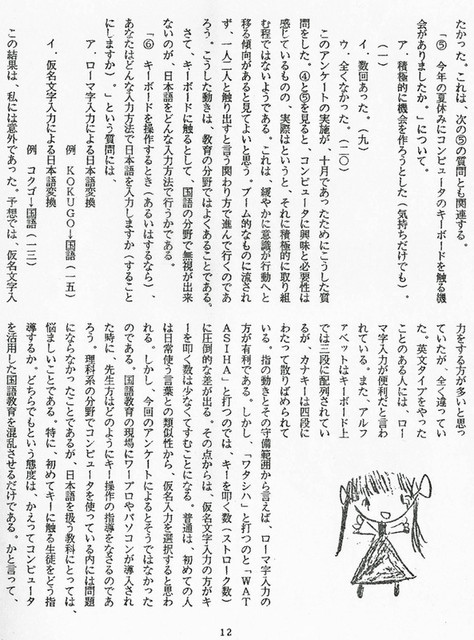 たかった。これは、次の⑤の質問とも関連する。
「⑤　今年の夏休みにコンピュータのキーボードを触る機
会がありましたか。」について。
ア．積極的に機会を作ろうとした（気持ちだけでも）。
（一）
イ．数回あった。（九）
ウ．全くなかった。（二〇）
このアンケートの実施が、十月であったためにこうした質
問をした。④と⑤を見ると、コンピュータに興味と必要性は
感じているものの、実際はというと、それに積極的に取り組
む程ではないようである。これは、緩やかに意識が行動へと
移る傾向があると見てよいと思う。ブーム的なものに流され
ず、一人二人と触り出すと言う関わり方で進んで行くのであ
ろう。こうした動きは、教育の分野ではよくあることである。
さて、キーボードに触るとして、国語の分野で無視が出来
ないのが、日本語をどんな入力方法で行うかである。
「⑥　キーボードを操作するとき（あるいはするなら）、
あなたはどんな入力方法で日本語を入力しますか（すること
にしますか）。」という質問には、
ア．ローマ字入力による日本語変換
例　ＫＯＫＵＧＯ→国語（一五）
イ．仮名文字入力による日本語変換
例　コクゴ→国語（一三）
この結果は、私には意外であった。予想では、仮名文字入
力をする方が多いと思っ
ていたが、全く違ってい
た。英文タイプをやった
ことのある人には、ロー
マ字入力が便利だと言わ
れている。また、アルフ
ァベットはキーボード上
では三段に配列されてい
るが、カナキーは四段に
わたって散りばめられて
いる。指の動きとその守備範囲から言えば、ローマ字入力の
方が有利である。しかし、「ワタシハ」と打つのと「ＷＡＴ
ＡＳＩＨＡ」と打つのでは、キーを叩く数（ストローク数）
に圧倒的な差が出る。その点からは、仮名文字入力の方がキ
ーを叩く数は少なくてすむことになる。普通は、初めての人
は日常使う言葉との類似性から、仮名入力を選択すると思わ
れる。しかし、今回のアンケートによるとそうではなかった
のである。国語教育の現場にワープロやパソコンが導入され
た時に、先生方はどのようにキー操作の指導をなさるのであ
ろう。理科系の分野でコンピュータを使っている内には問題
にならなかったことであるが、日本語を扱う教科にとっては、
悩ましいことである。特に、初めてキーに触る生徒をどう指
導するか。どちらでもという態度は、かえってコンピュータ
を活用した国語教育を混乱させるだけである。かと言って、
12